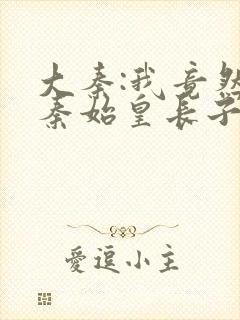 大秦:我竟然
秦始皇长子
愛逗小主